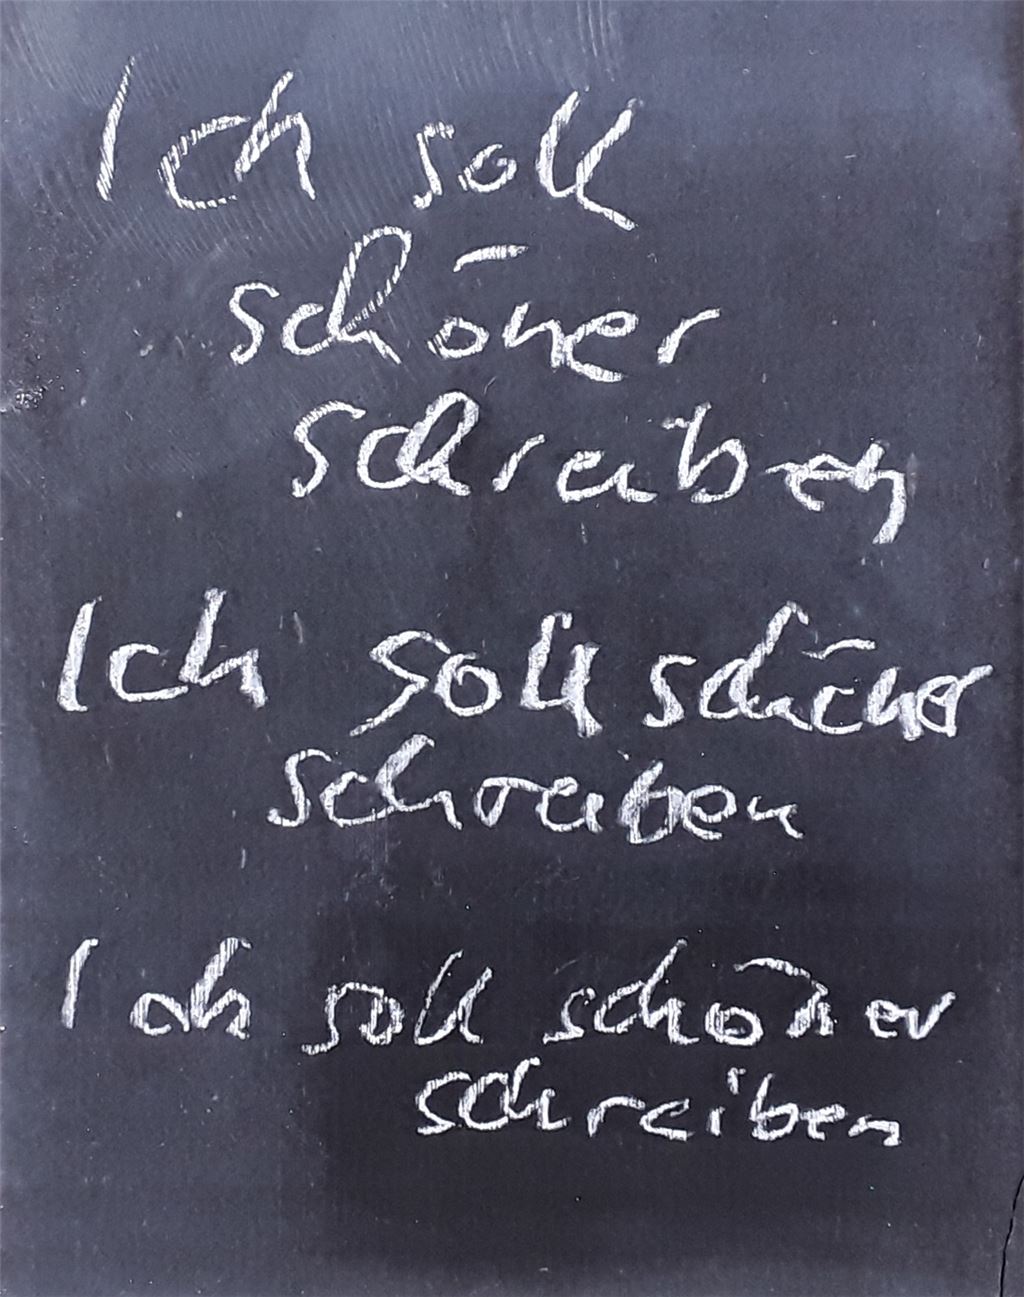 Ich soll
schöner
schreiben
Ich soll schöner
schreiben
Ich soll schöner
schreiben